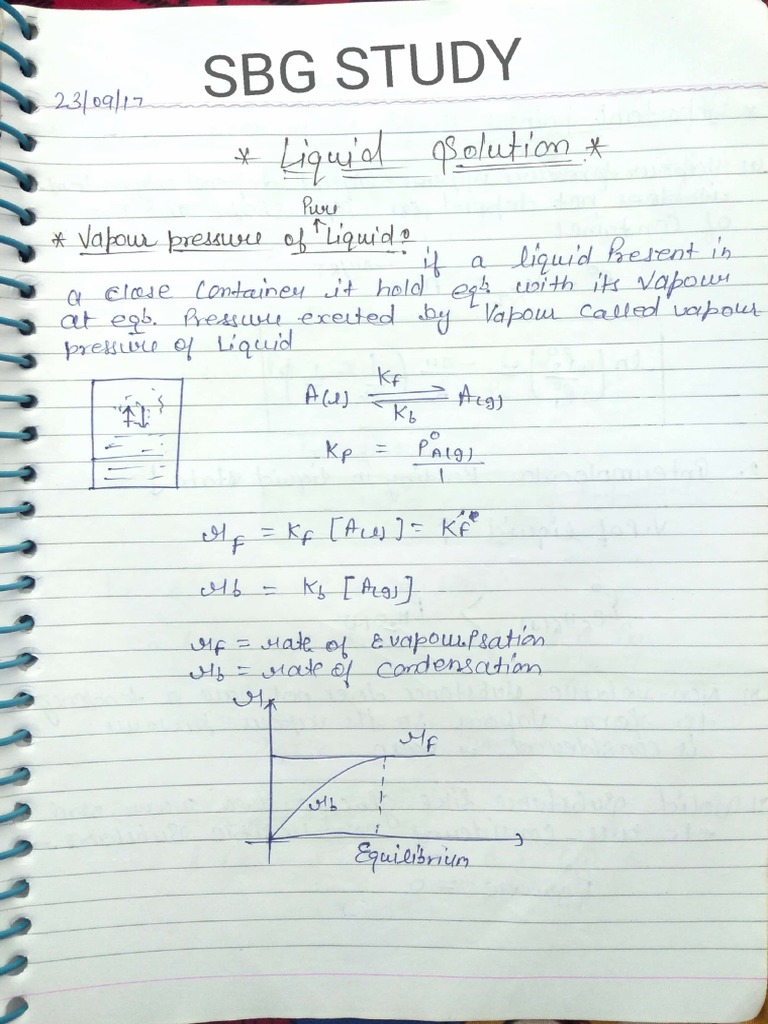 SBG STUDY
23/09/17
* Liquid Solution *
Pure
* Vapour pressure of ↑ Liquid:
if a liquid Present in
a close Container it hold eqb. with its Vapour
at eqb. Pressure exerted by Vapour Called vapour
pressure of Liquid
Kf
A(l) ⇌ A(g)
Kb
Kp = P°A(g)
1
rf = Kf [A(l)] = Kf'
rb = Kb [A(g)]
rf = rate of
rb = rate of condensation
r
rf
rb
Equilibrium